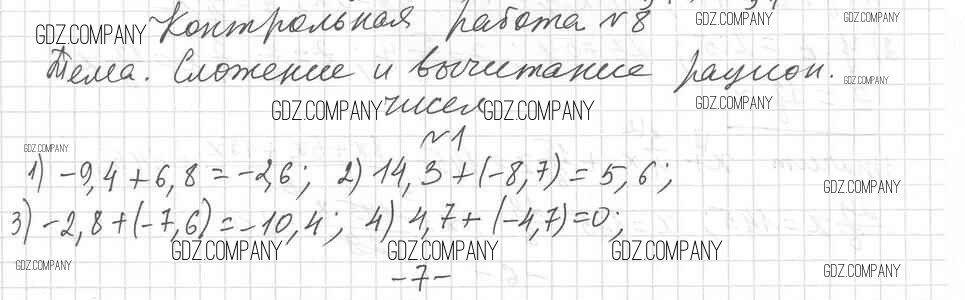 Контрольная работа №8 GDZ.COMPANY GDZ.COMPANY
GDZ.COMPANY
Тема. Сложение и вычитание рацион. GDZ.COMPANY
GDZ.COMPANY чисел GDZ.COMPANY GDZ.COMPANY
№1
GDZ.COMPANY
1) -9,4 + 6,8 = -2,6; 2) 14,3 + (-8,7) = 5,6;
GDZ.COMPANY
3) -2,8 + (-7,6) = -10,4; 4) 4,7 + (-4,7) = 0;
GDZ.COMPANY GDZ.COMPANY GDZ.COMPANY
GDZ.COMPANY -7- GDZ.COMPANY